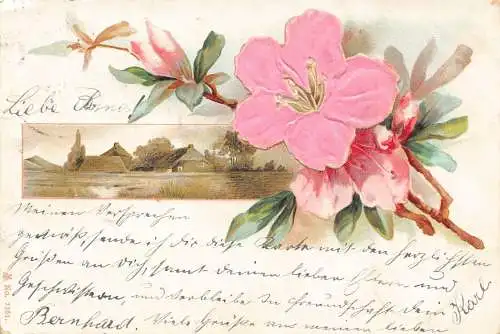 Liebe
Meinem Versprechen
gemäß sende ich dir diese Karte mit den herzlichsten
Grüßen an Dich, samt deinen lieben Eltern und
Geschwistern, und verbleibe in Freundschaft dein
Bernhard. Viele Grüße aus meinem lieben
Karl
No. 7351.